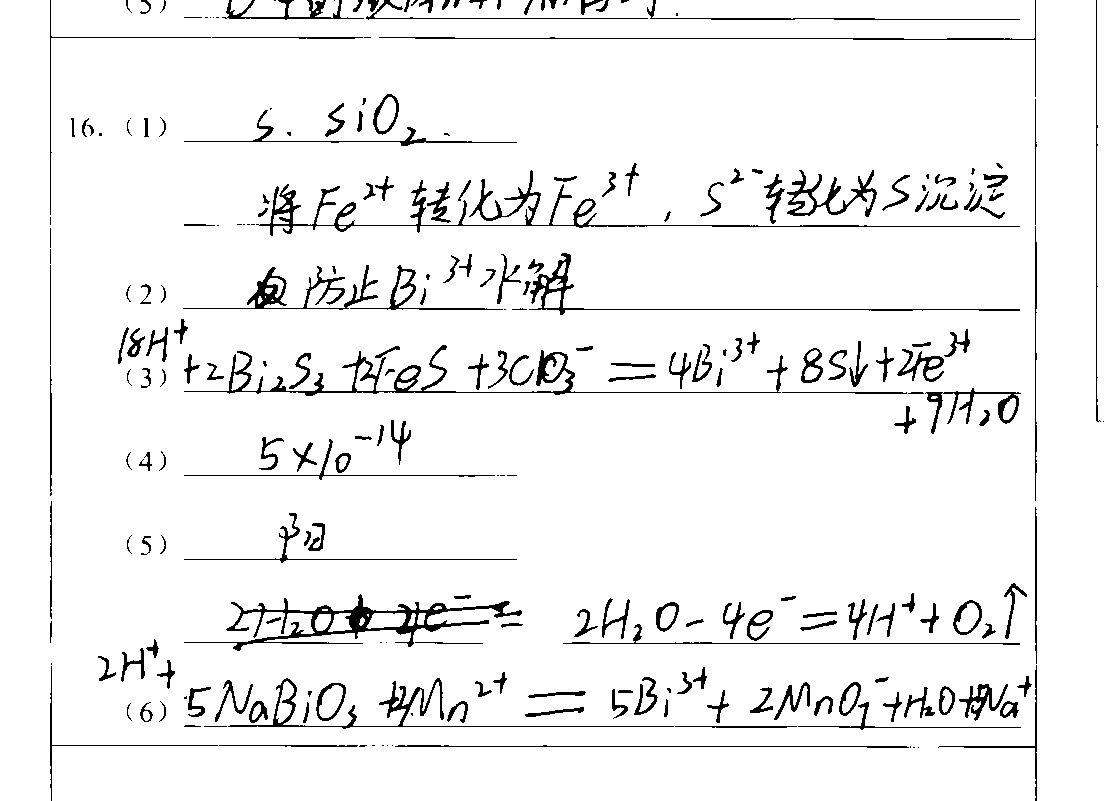 (5)
16. (1) S. SiO₂.
将Fe²⁺转化为Fe³⁺, S²⁻转化为S沉淀
(2) 防止Bi³⁺水解
(3) 18H⁺+2Bi₂S₃+2FeS+3ClO₃⁻=4Bi³⁺+8S↓+2Fe³⁺
+9H₂O
(4) 5×10⁻¹⁴
(5) 阳
2H₂O-4e⁻=4H⁺+O₂↑
2H⁺+
(6) 5NaBiO₃+2Mn²⁺=5Bi³⁺+2MnO₄⁻+H₂O+5Na⁺